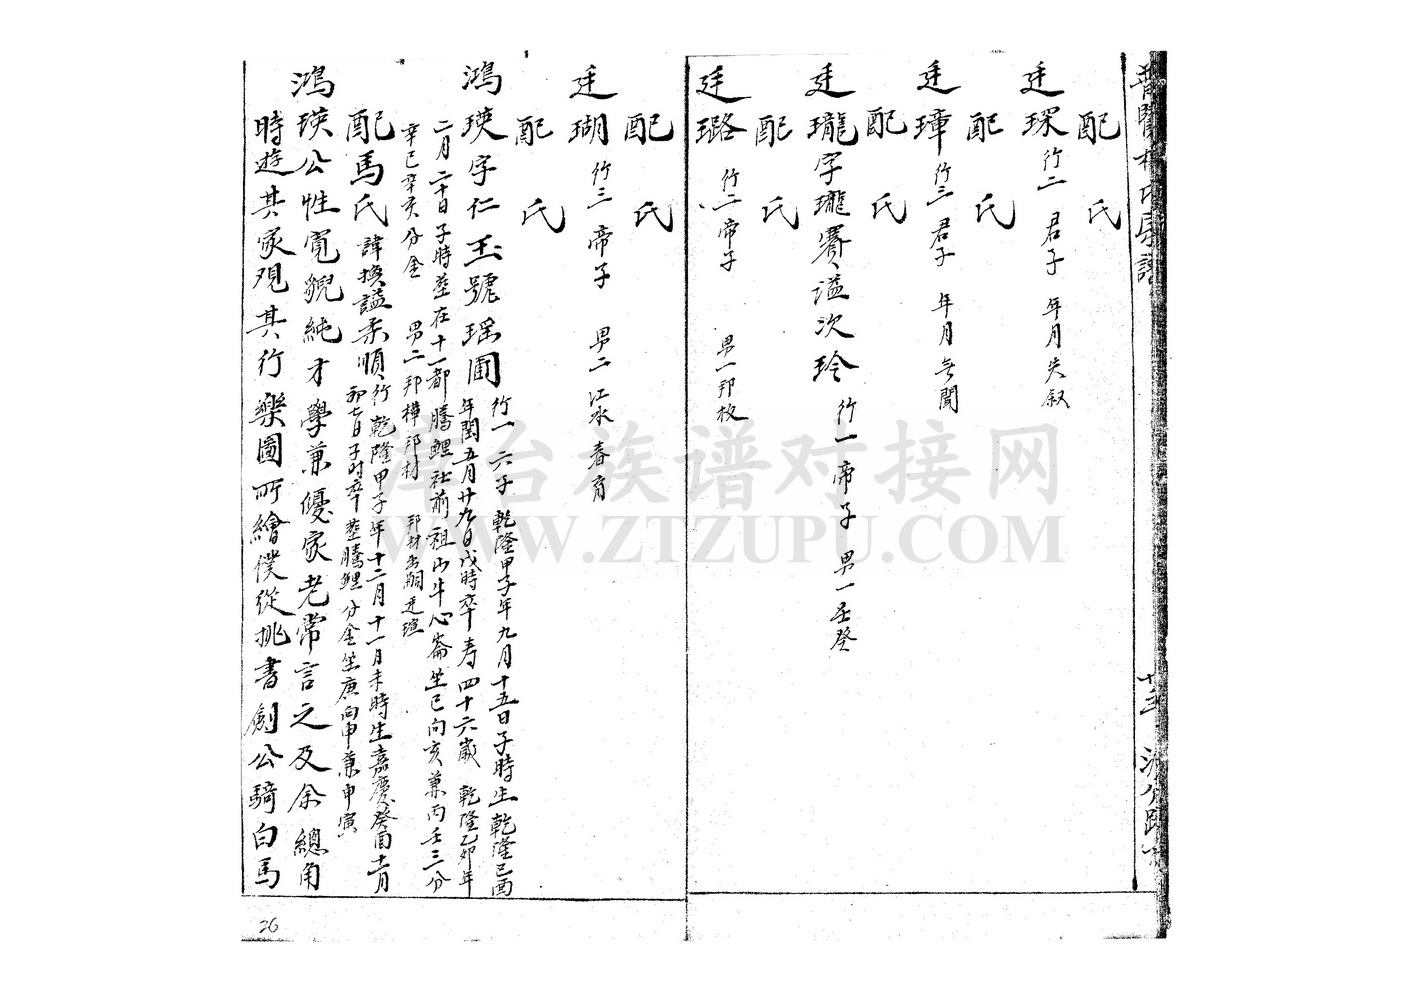 配 氏
廷琛 行二 君子 年月失叙
配 氏
廷璋 行三 君子 年月無聞
配 氏
廷瓏字瓏賽謚次玲 行一帝子 男一丕發
配 氏
廷璐 行二帝子 男一邦枚
配 氏
廷瑚 行三 帝子 男二 江水 春育
配 氏
鴻瑛字仁玉號瑶圃 行一六子 乾隆甲子年九月十五日子時生乾隆己酉
年閏五月廿九日戌時卒寿四十六歲 乾隆乙卯年
二月二十日子時塟在十一都騰鯉社前祖山牛心崙坐巳向亥兼丙壬三分
辛巳辛亥分金 男二邦樺邦材 邦材出嗣廷瑄
配馬氏諱換謚柔順行 乾隆甲子年十二月十一月未時生嘉慶癸酉十一月
初七日子时卒塟騰鯉 分金坐庚向甲兼申寅
鴻瑛公性寬貌純才學兼優家老常言之及余總角
時遊其家观其行樂圖所繪僕從挑書劍公騎白馬
26
澤台族谱对接网
WWW.ZTZUPU.COM